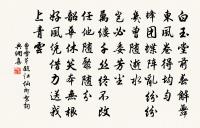 白玉堂前春解舞
東風卷得均勻
蜂團蝶陣亂紛紛
幾曾隨逝水
豈必委芳塵
萬縷千絲終不改
任他隨聚隨分
韶華休笑本無根
好風凭借力送我
上青雲
曹雪芹臨江仙柳絮詞